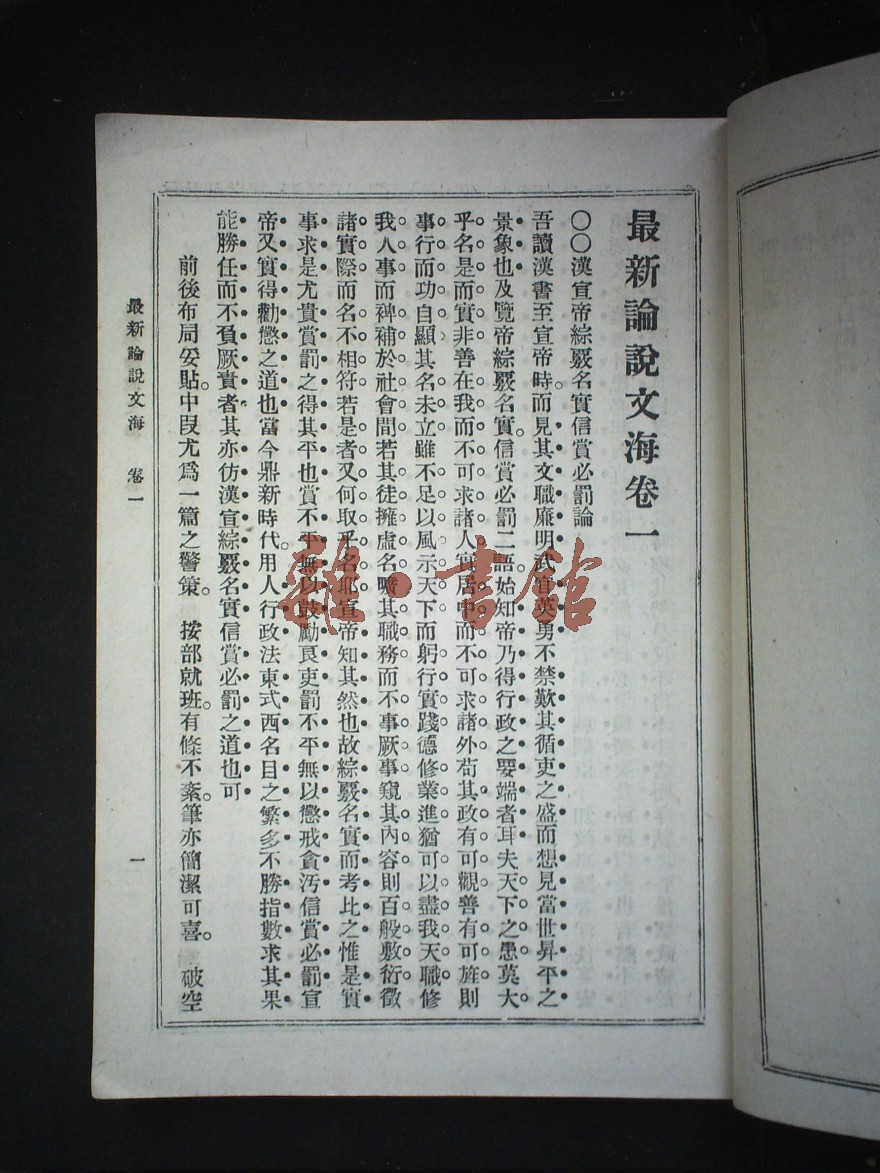 最新論說文海卷一
〇〇漢宣帝綜覈名實信賞必罰論
吾讀漢書至宣帝時。而見其文職廉明武官英勇不禁歎其循吏之盛而想見當世昇平之
景象也及覽帝綜覈名實信賞必罰二語始知帝乃得行政之要端者耳夫天下之患莫大
乎名是而實非善在我而不可求諸人實居中而不可求諸外苟其政有可觀善有可旌則
事行而功自顯其名未立雖不足以風示天下而躬行實踐德修業進猶可以盡我天職修
我人事而裨補於社會間若其徒擁虛名曠其職務而不事厥事窺其內容則百般敷衍徵
諸實際而名不相符若是者又何取乎名耶宣帝知其然也故綜覈名實而考比之惟是實
事求是尤貴賞罰之得其平也賞不平無以鼓勵良吏罰不平無以懲戒貪汚信賞必罰宣
帝又實得勸懲之道也當今鼎新時代。用人行政法東式西名目之繁多不勝指數求其果
能勝任而不負厥責者其亦仿漢宣綜覈名實信賞必罰之道也可
前後布局妥貼。中段尤爲一篇之警策。 按部就班。有條不紊。筆亦簡潔可喜。 破空
最新論說文海 卷一 一
雜·書館